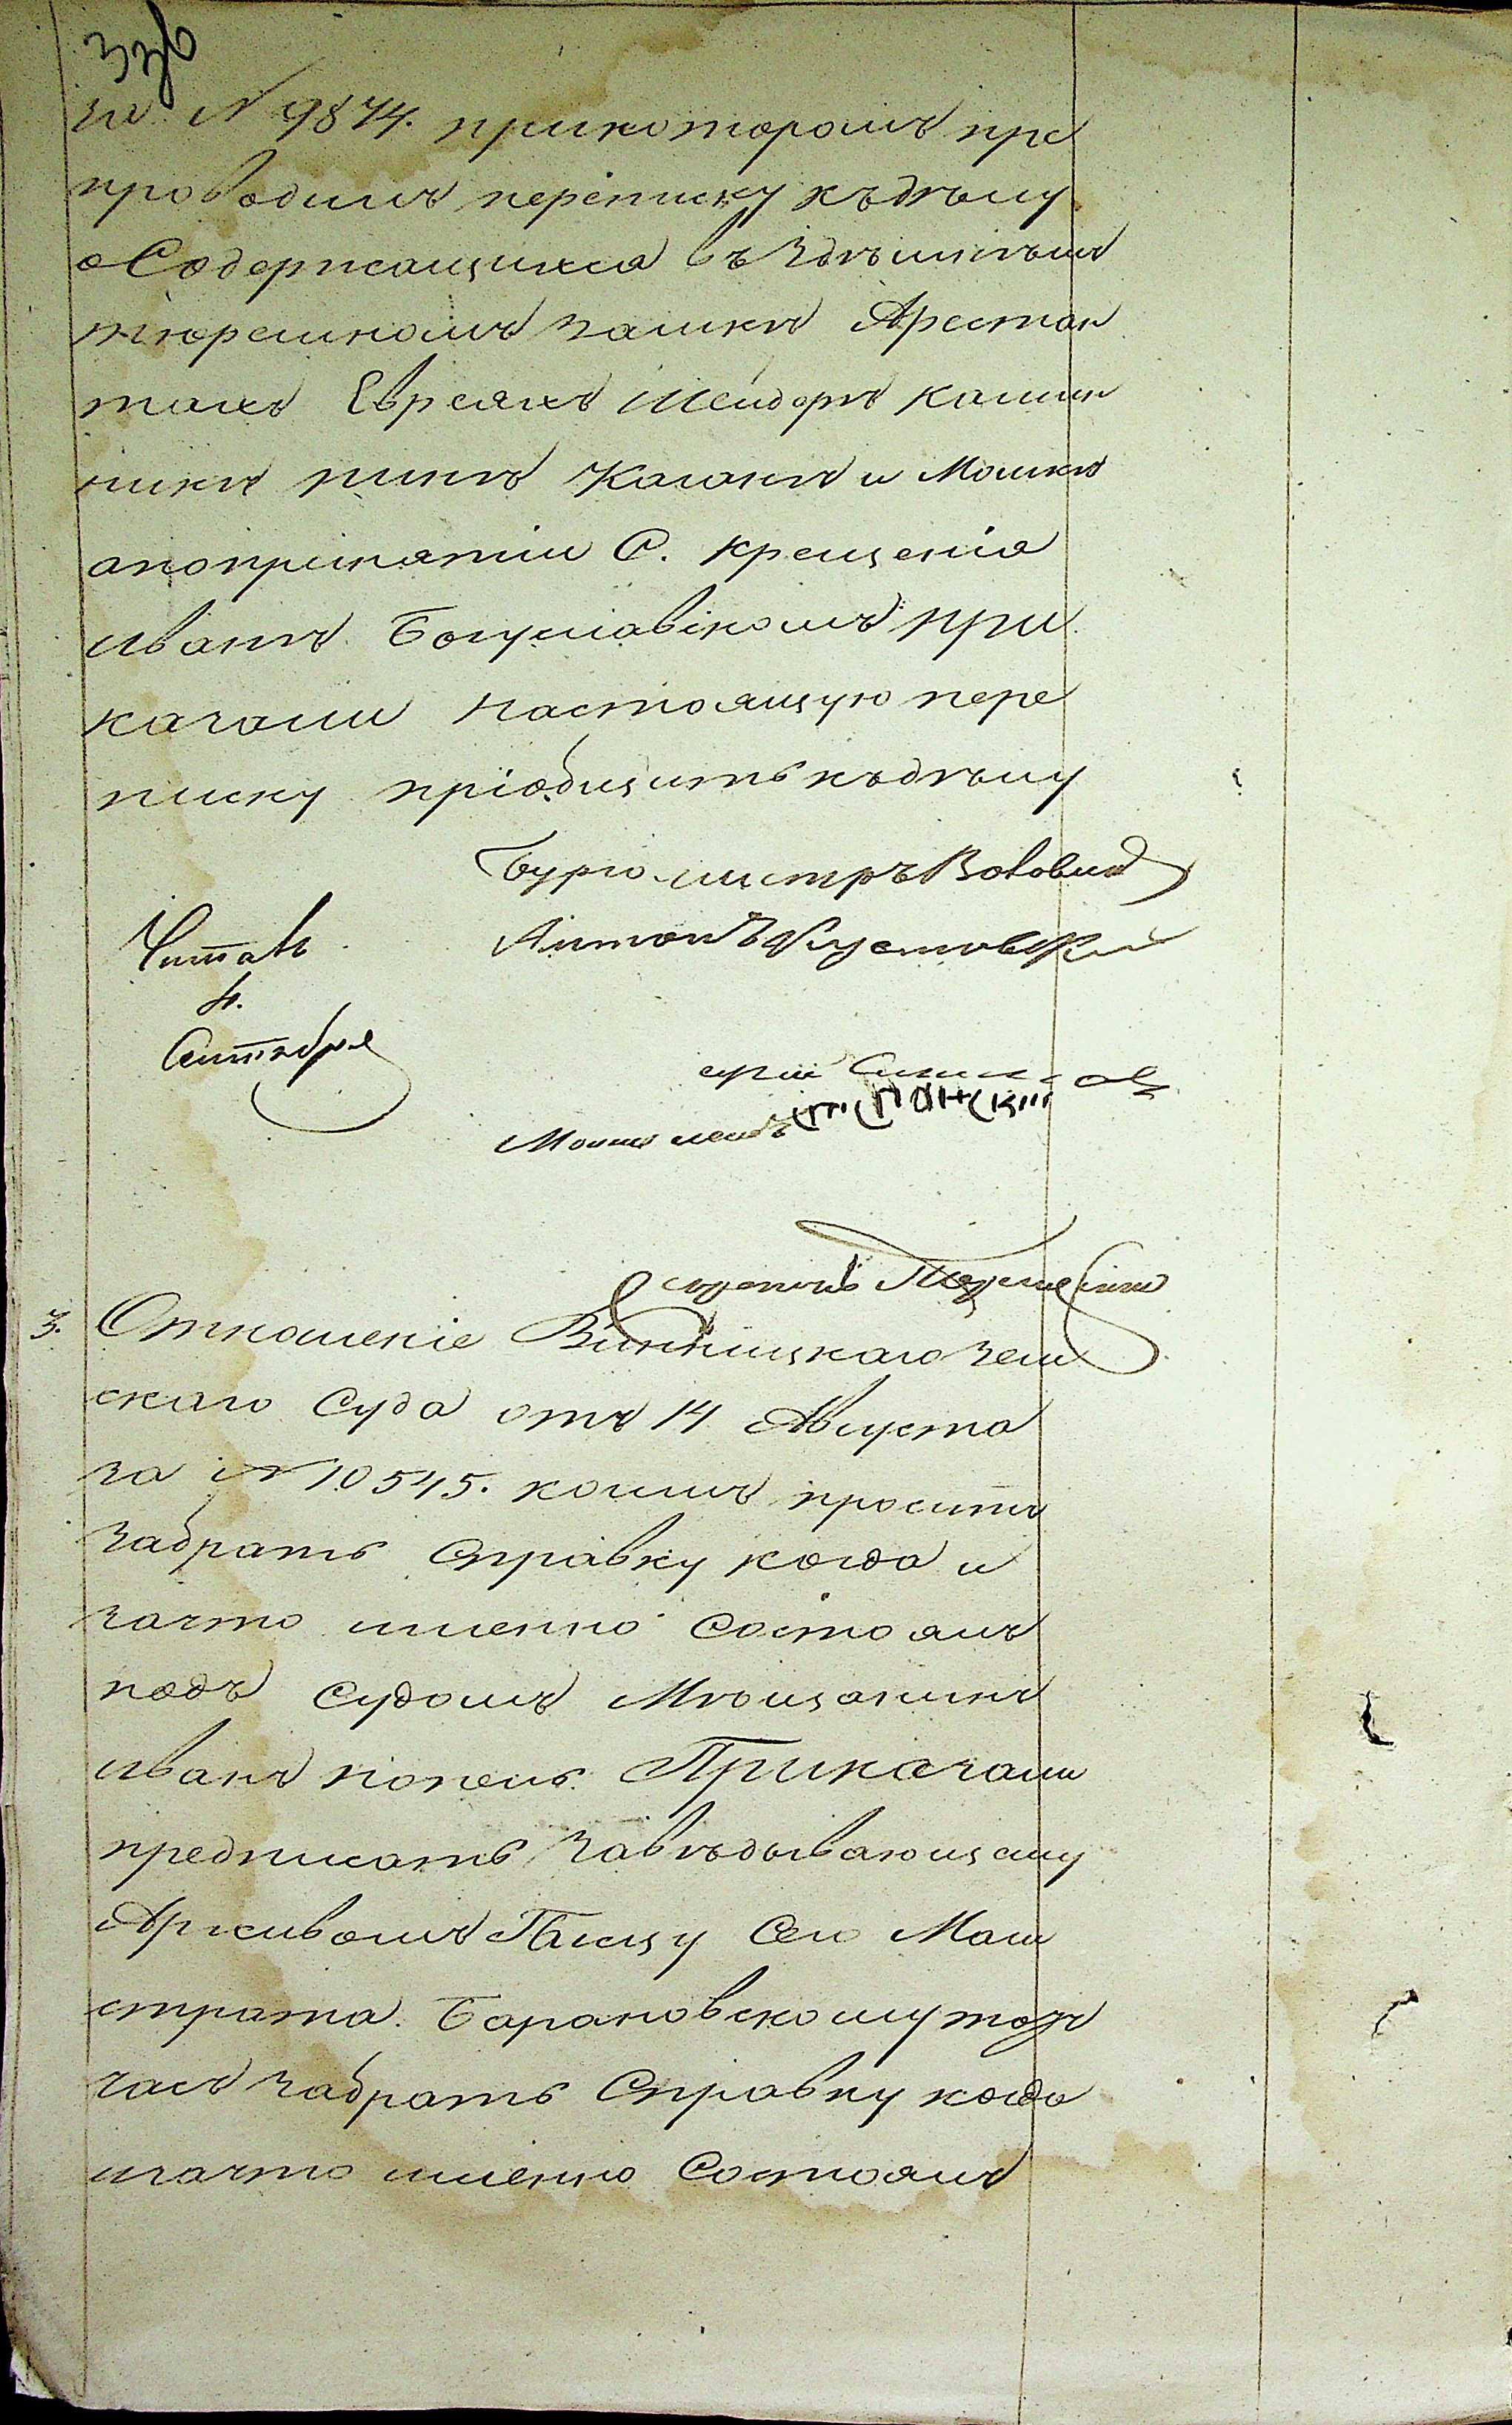 за N 9874. прикоторомъ пре
проводимъ переписку къдѣлу
о Содержащихся въ Здѣшнѣмъ
тюремномъ замкѣ Арестан
тахъ Евреяхъ Шендорѣ Камин
никѣ Пинѣ Коганѣ и Мошкѣ
апопринятіи С. крещенія
Иванѣ Богуславскомъ при
казали настоящую пере
писку пріобщить къдѣлу
Бургомистръ
Антонъ
Читалъ
4.
Сентября
3. Отношеніе Винницкаго Зем
скаго Суда отъ 14 Августа
за N 10545. коимъ проситъ
забрать Справку когда и
зачто именно состоялъ
подъ судомъ Мѣщанинъ
Иванъ Приказали
предписать Завѣдывающему
Архивомъ Писцу Сего Маги
страта. Барановскому тотъ
часъ забрать Справку когда
изачто именно Состоялъ